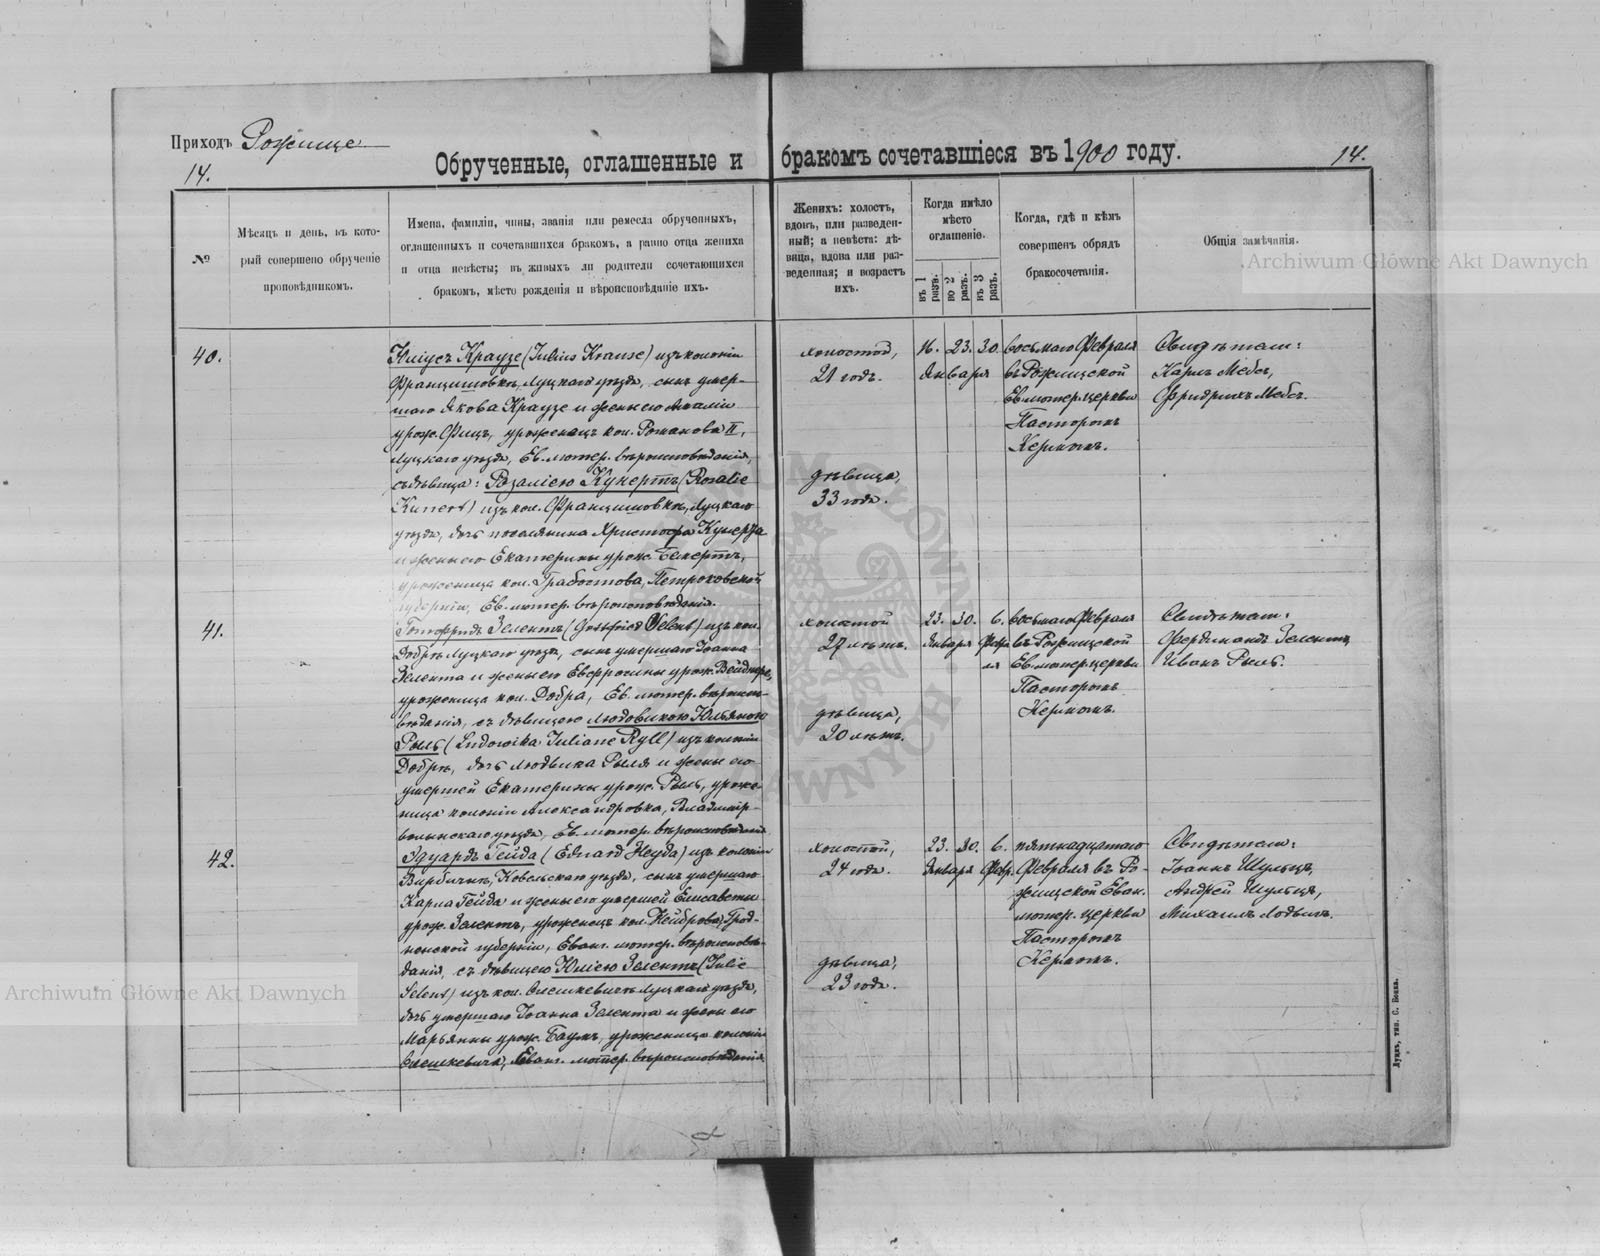 Приходъ Рожище
14.
Обрученные, оглашенные и бракомъ сочетавшіеся въ 1900 году.
14.
№
Мѣсяцъ и день, въ кото-
рый совершено обрученіе
проповѣдникомъ.
Имена, фамиліи, чины, званія или ремесла обрученныхъ,
оглашенныхъ и сочетавшихся бракомъ, а равно отца жениха
и отца невѣсты; въ живыхъ ли родители сочетающихся
бракомъ, мѣсто рожденія и вѣроисповѣданіе ихъ.
Женихъ: холостъ,
вдовъ, или разведен-
ный; а невѣста: дѣ-
вица, вдова или раз-
веденная; и возрастъ
ихъ.
Когда имѣло
мѣсто
оглашеніе.
въ 1 разъ.
во 2 разъ.
въ 3 разъ.
Когда, гдѣ и кѣмъ
совершенъ обрядъ
бракосочетанія.
Общія замѣчанія.
40.
Юліусъ Краузе (Julius Krause) изъ колоніи
Францишовки, Луцкаго уѣзда, сынъ умер-
шаго Якова Краузе и жены его Амаліи
урож. Фицъ, уроженецъ кол. Романова II,
Луцкаго уѣзда, Ев. лютер. вѣроисповѣданія,
съ дѣвицею: Розаліею Кунертъ (Rosalie
Kunert) изъ кол. Францишовки, Луцкаго
уѣзда, дочь поселянина Христофа Кунерта
и жены его Екатерины урож. Бекертъ,
уроженица кол. Грабостова, Петроковской
губерніи, Ев. лютер. вѣроисповѣданія.
холостой,
21 годъ.
дѣвица,
33 года.
16. 23. 30.
Января
восьмаго Февраля
въ Рожищской
Ев. лютер. церкви
Пасторомъ
Кермомъ.
Свидѣтели:
Карлъ Мебсъ,
Фридрихъ Мебсъ.
41.
Готфридъ Зелентъ (Gottfried Selent) изъ кол.
Добрѣ Луцкаго уѣзда, сынъ умершаго Іоанна
Зелента и жены его Евфросины урож. Вейднеръ,
уроженецъ кол. Добра, Ев. лютер. вѣроиспо-
вѣданія, съ дѣвицею Людовикою Юльяною
Рыль (Ludowika Juliane Ryll) изъ колоніи
Добрѣ, дочь Людвика Рыля и жены его
умершей Екатерины урож. Рыль, уроже-
ница колоніи Александровка, Владимір-
волынскаго уѣзда, Ев. лютер. вѣроисповѣданія.
холостой
27 лѣтъ.
дѣвица,
20 лѣтъ.
23. 30. 6.
Января Февра
ля
восьмаго Февраля
въ Рожищской
Ев. лютер. церкви
Пасторомъ
Кермомъ.
Свидѣтели:
Фердинандъ Зелентъ,
Иванъ Рыль.
42.
Эдуардъ Гейда (Eduard Heyda) изъ колоніи
Вирбични, Ковельскаго уѣзда, сынъ умершаго
Карла Гейда и жены его умершей Елисаветы
урож. Зелентъ, уроженецъ кол. Нейброва, Грод-
ненской губерніи, Еванг. лютер. вѣроисповѣ-
данія, съ дѣвицею Юліею Зелентъ (Julie
Selent) изъ кол. Олешкевичъ Луцкаго уѣзда,
дочь умершаго Іоанна Зелента и жены его
Марьянны урож. Баумъ, уроженица колоніи
Олешкевичъ, Еванг. лютер. вѣроисповѣданія.
холостой,
24 года.
дѣвица,
23 года.
23. 30. 6.
Января Февр.
пятнадцатаго
Февраля въ Ро-
жищской Еван.
лютер. церкви
Пасторомъ
Кермомъ.
Свидѣтели:
Іоаннъ Шульцъ,
Андрей Шульцъ,
Михаилъ Лодвигъ.
Луцкъ, тип. С. Бокка.
Archiwum Główne Akt Dawnych
Archiwum Główne Akt Dawnych